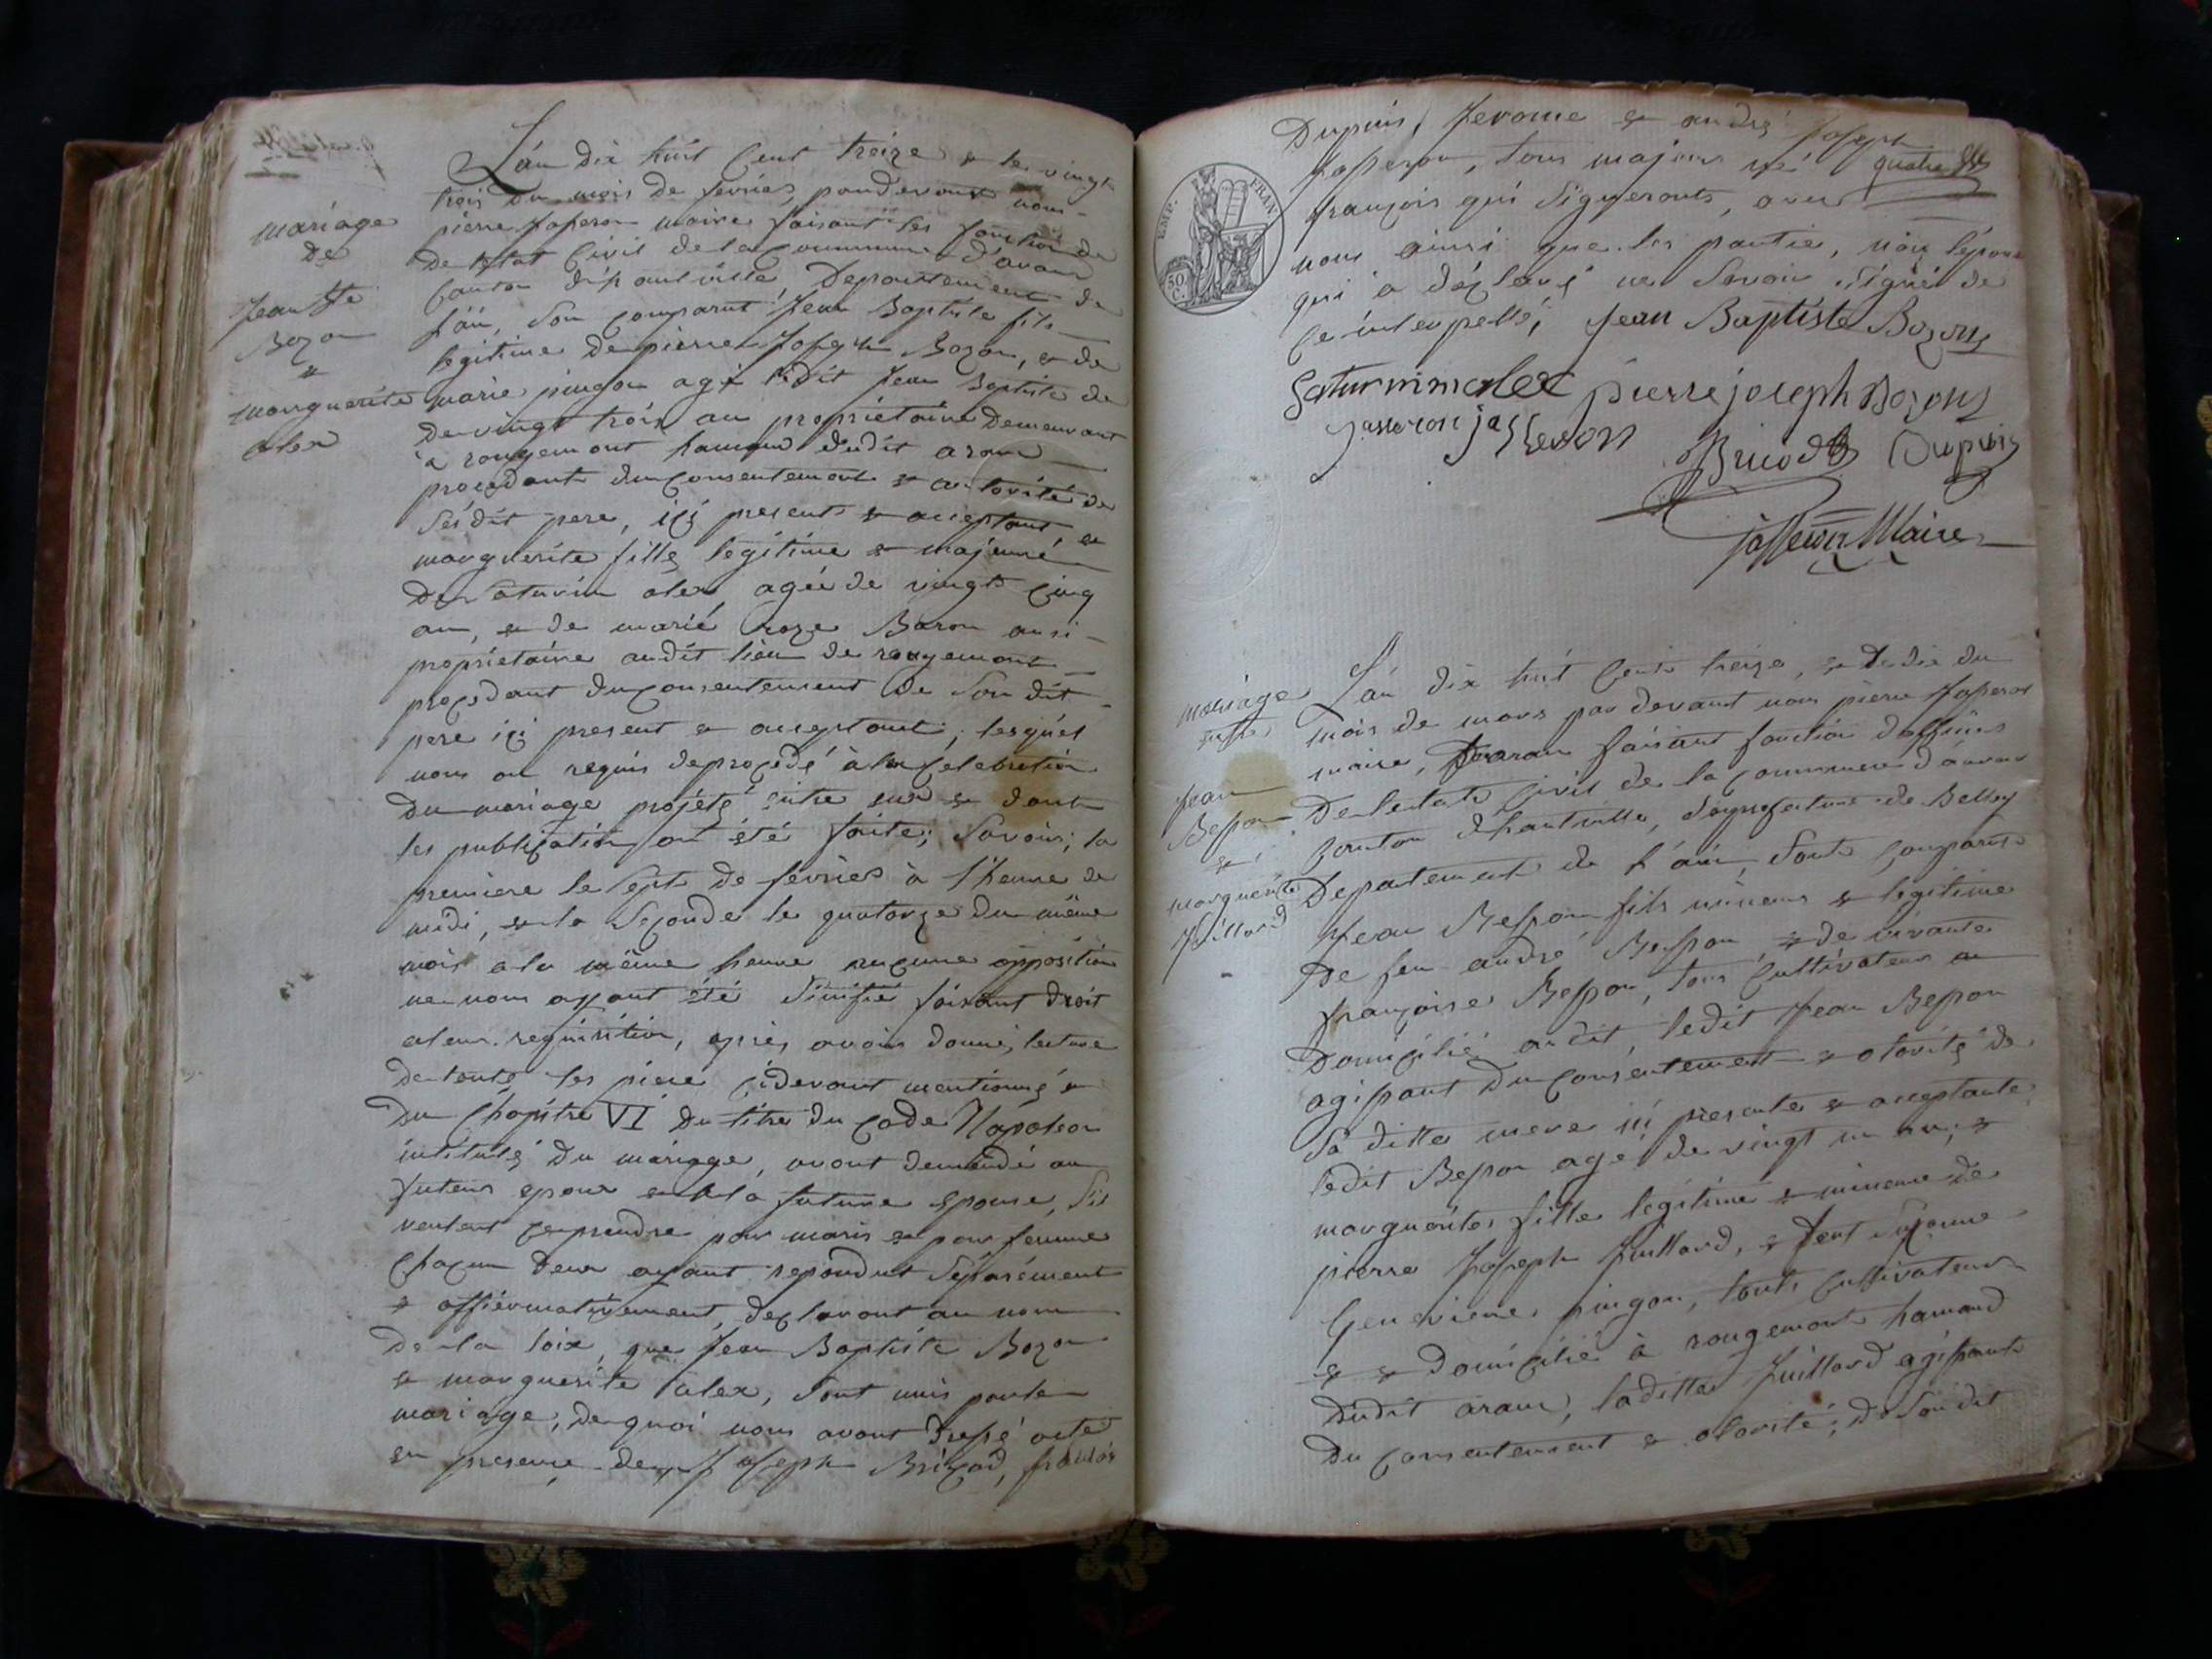 mariage
De
Jean Bte
Bozon
&
marguerite
alex
L'an dix huit Cent treize & le vingt
trois du mois de fevrier, pardevant nous
pierre Jasseron maire faisant les fonction de
De letat Civil de la Commune d'aran
Canton d'hauteville, Departement de
l'ain, Son comparut Jean Baptiste fils
legitime de pierre Joseph Bozon, & de
marie pingon agé ledit Jean Baptiste de
de vingt trois an propriétaire Demeurant
a rougemont hameau dudit aran
procedant du Consentement & autorité de
Sesdit pere, ici present & acceptant, &
marguerite fille legitime & majeure
De Saturnin alex, agée de vingt Cinq
an, & de marie roze Baron ausi
propriétaire audit lieu de rougemont
procedant du consentement de Son dit
pere ici present & acceptant, lesquel
nous on requis de procedé à la Celebration
du mariage projété entre eux & dont
les publication on été faite; Savoir; la
premiere le Sept de fevrier à l'heure de
midi, & la Seconde le quatorze du même
mois a la même heure aucune opposition
ne nous ayant été Sinifie faisant droit
a leur requisition, après avoir donné lecture
de toute les piece cidevant mentionné &
Du Chapitre VI Du titre du Code Napoleon
intitulé Du mariage, avont demandé au
futeur epoux & à la future epouse, Sil
veulent ce prendre pour maris & pour femme
Chacun deux ayant repondut Séparément
& affiermativement, declaront au nom
de la loix, que Jean Baptiste Bozon
& marguerite alex, Sont unis par le
mariage, de quoi nous avont Dressé acte
en presence de Joseph Brizod,
Dupuis, Jerome & andré Joseph
Jasseron, tous majeurs né quatre
françois qui Signeronts, avec
nous ainsi que les partie, non l'épouse
qui a déclaré ne Savoir Signé de
Ce interpellé, Jean Baptiste Bozon
Saturnin alex pierre joseph Bozon
Jasseron jasseron
Brizod Dupuis
Jasseron Maire
EMP. FRAN
50 C.
mariage
entre
Jean
Besson
&
marguerite
Juillard
L'an dix huit Cent treize, & le dix du
mois de mars par devant nous pierre Jasseron
maire, Daran faisant fonction d'officies
De letat Civil de la Commune d'aran
Canton d'hautville, Souprefecture de Belley
Departement de l'ain, Sont Comparus
Jean Besson fils mineur & legitime
De feu andré Besson, & de vivante
françoise Besson, tous Cultivateur an
Domicilié audit, ledit Jean Besson
agissant du Consentement & otorité de
Sa ditte mere ici presente & acceptante
ledit Besson agé de vingt un an, &
marguerite fille legitime & mineure de
pierre Joseph Juillard, &
Genevieve pingon, touts Cultivateur
& Domicilié à rougemont hamaud
Dudit aran, laditte Juillard agissante
Du Consentement & otorité, de Soudit